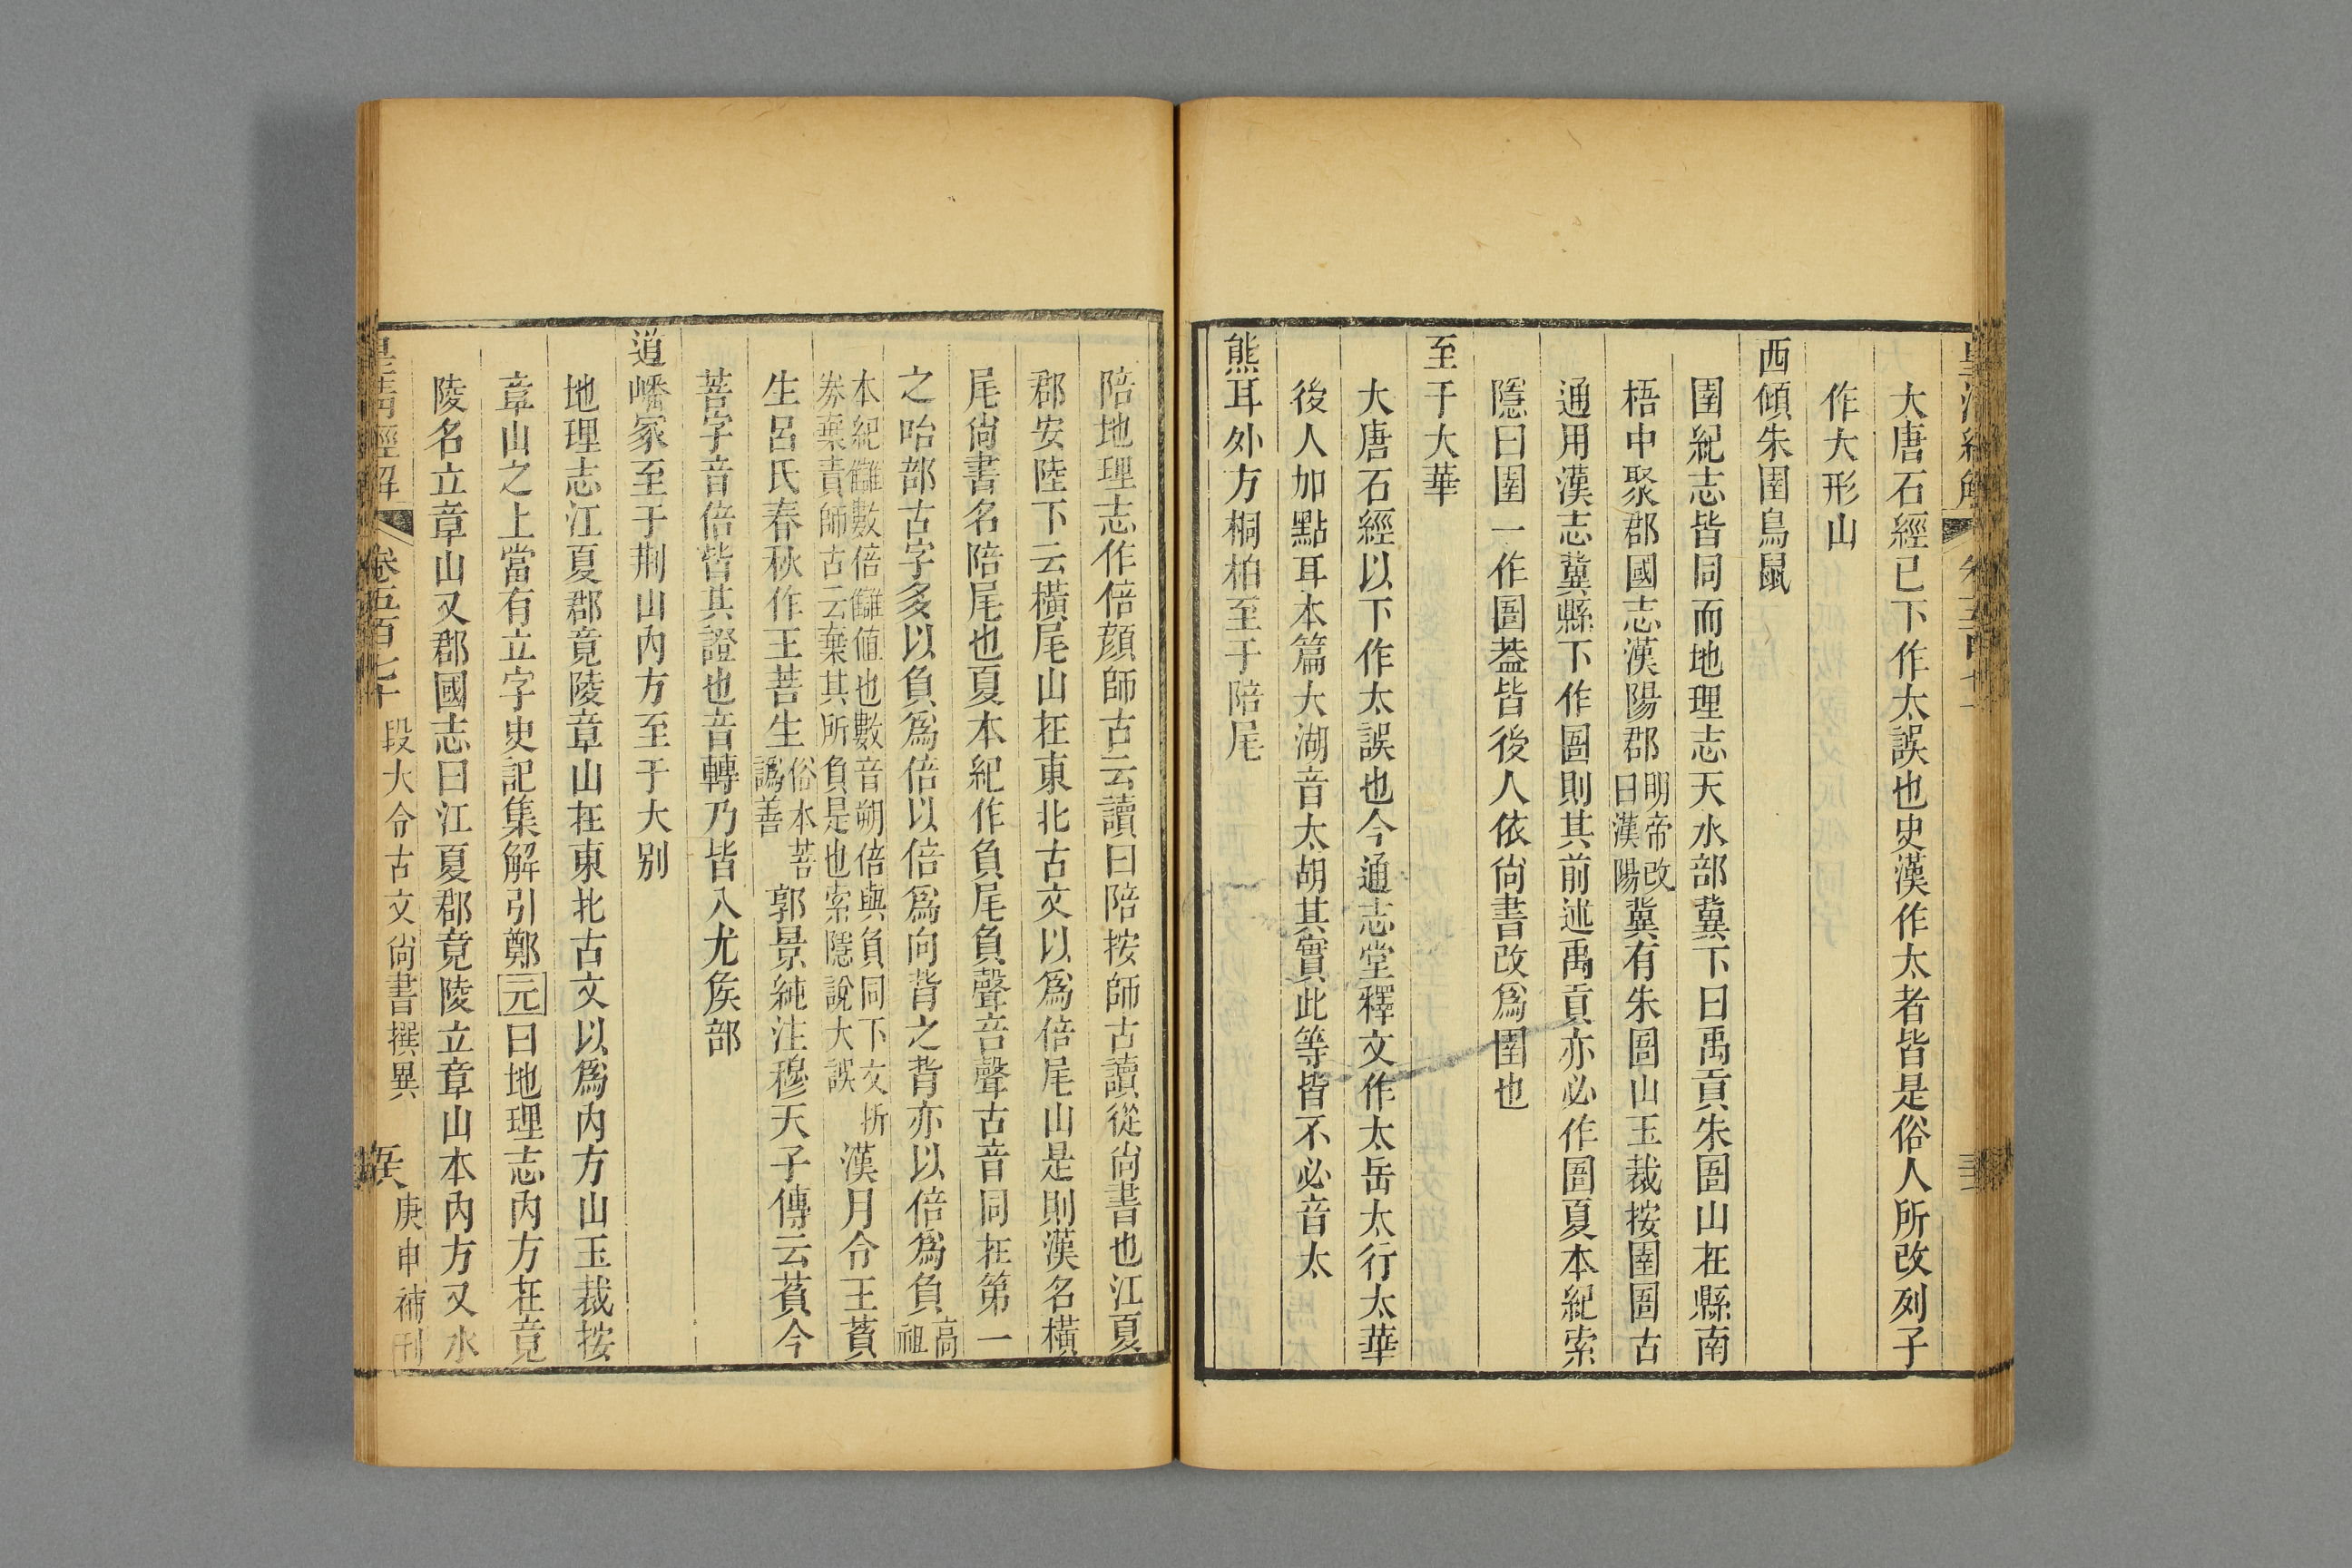 大唐石經已下作太誤也史漢作太者皆是俗人所改列子
作大形山
西傾朱圉鳥鼠
圉紀志皆同而地理志天水部冀下曰禹貢朱圄山在縣南
梧中聚郡國志漢陽郡明帝改曰漢陽冀有朱圄山玉裁按圉圄古
通用漢志冀縣下作圄則其前述禹貢亦必作圄夏本紀索
隱曰圉一作圄葢皆後人依尙書改爲圉也
至于大華
大唐石經以下作太誤也今通志堂釋文作太岳太行太華
後人加點耳本篇大湖音太胡其實此等皆不必音太
熊耳外方桐柏至于陪尾
陪地理志作倍顔師古云讀曰陪按師古讀從尙書也江夏
郡安陸下云橫尾山在東北古文以爲倍尾山是則漢名橫
尾尙書名陪尾也夏本紀作負尾負聲咅聲古音同在第一
之咍部古字多以負爲倍以倍爲向背之背亦以倍爲負高祖
本紀讎數倍讎値也數音朔倍與負同下文折券棄責師古云棄其所負是也索隱說大誤漢月令王萯
生呂氏春秋作王菩生俗本菩譌善郭景純注穆天子傳云萯今
菩字音倍皆其證也音轉乃皆入尤矦部
道嶓冢至于荆山內方至于大别
地理志江夏郡竟陵章山在東北古文以爲內方山玉裁按
章山之上當有立字史記集解引鄭元曰地理志內方在竟
陵名立章山又郡國志曰江夏郡竟陵立章山本內方又水
皇淸經解 卷五百七十 段大令古文尙書撰異 庚申補刊